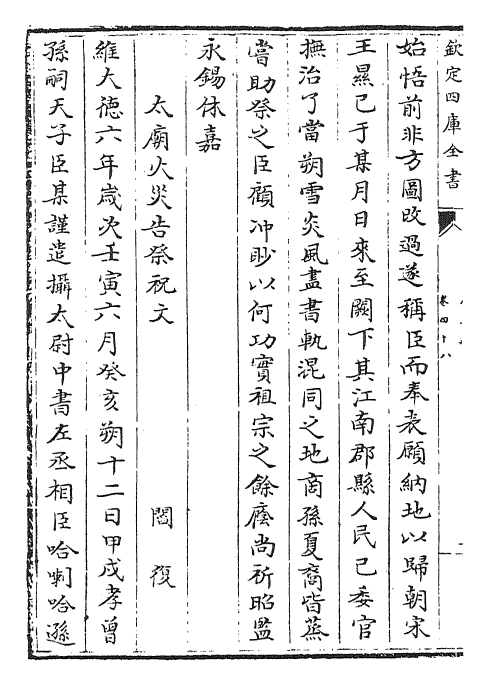 欽定四庫全書
卷四十八
始悟前非方圖改過遂稱臣而奉表願納地以歸朝宋
王㬎已于某月日來至闕下其江南郡縣人民已委官
撫治了當朔雪炎風盡書軌混同之地商孫夏裔皆蒸
嘗助祭之臣顧冲眇以何功實祖宗之餘廕尚祈昭鑒
永錫休嘉
太廟火災告祭祝文 閻復
維大德六年歲次壬寅六月癸亥朔十二日甲戌孝曾
孫嗣天子臣某謹遣攝太尉中書左丞相臣哈喇哈遜